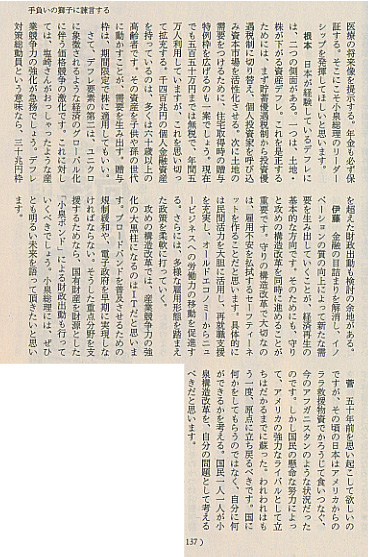 手負いの獅子に諫言する
医療の将来像を提示する。年金も必ず保
証する。そこにこそ小泉総理のリーダー
シップを発揮してほしいと思います。
根本　日本が経験しているデフレに
は、二つの側面がある。一つは、土地・
株が下がる資産デフレ。これを是正する
ためには、まず貯蓄優遇税制から投資優
遇税制に切り替え、個人投資家を呼び込
み資本市場を活性化させる。次に土地の
需要をつけるために、住宅取得時の贈与
特例枠を広げるのも一案でしょう。現在
でも五百五十万円までは無税で、年間五
万人利用していますが、これを思い切っ
て拡充する。千四百兆円の個人金融資産
を持っているのは、多くは六十歳以上の
高齢者です。その資産を子供や孫の世代
に動かすことが、需要を生み出す。贈与
枠は、期間限定で株に適用してもいい。
さて、デフレ要素の第二は、ユニクロ
に象徴されるような経済のグローバル化
に伴う価格競争の激化です。これに対し
ては、塩崎さんがおっしゃったような産
業競争力の強化が急務でしょう。デフレ
対策総動員という意味なら、三十兆円枠
を超えた財政出動も検討の余地がある。
伊藤　金融の目詰まりを解消し、イノ
ベーションの質の向上によって新たな需
要を生み出していくことが、経済再生の
基本的な方向です。そのためにも、守り
と攻めの構造改革を同時に進めることが
重要です。守りの構造改革で大切なの
は、雇用不安を払拭するセーフティーネ
ットを作ることだと思います。具体的に
は民間活力を大胆に活用し、再就職支援
を充実し、オールドエコノミーからニュ
ービジネスへの労働力の移動を促進す
る。さらには、多様な雇用形態を踏まえ
た政策を柔軟に打っていく。
攻めの構造改革では、産業競争力の強
化の大黒柱になるのはＩＴだと思いま
す。ブロードバンドを普及させるための
規制緩和や、電子政府を早期に実現しな
ければならない。そうした重点分野を支
援するためなら、国有財産を財源とした
「小泉ボンド」による財政出動も行って
いくべきでしょう。小泉総理には、ぜひ
とも明るい未来を語って頂きたいと思い
ます。
菅　五十年前を思い起こして欲しいの
ですが、その頃の日本はアメリカからの
ララ救援物資でかろうじて食いつなぐ、
今のアフガニスタンのような状況だった
のです。しかし国民の懸命な努力によっ
て、アメリカの強力なライバルとして立
ちはだかるまでに蘇った。われわれはも
う一度、原点に立ち戻るべきです。国に
何かをしてもらうのではなく、自分に何
ができるかを考える。国民一人一人が小
泉構造改革を、自分の問題として考える
べきだと思います。
137)